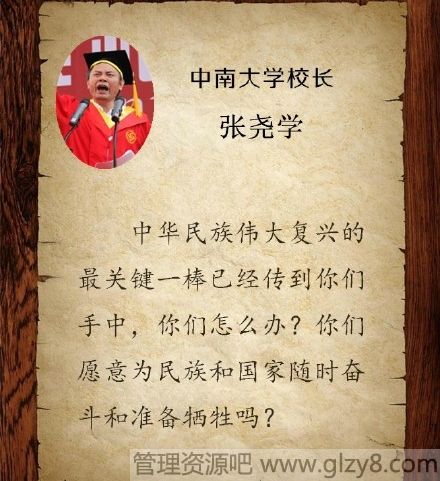 中南大学校长
张尧学
中华民族伟大复兴的
最关键一棒已经传到你们
手中，你们怎么办？你们
愿意为民族和国家随时奋
斗和准备牺牲吗？
管理资源吧 www.glzy8.com